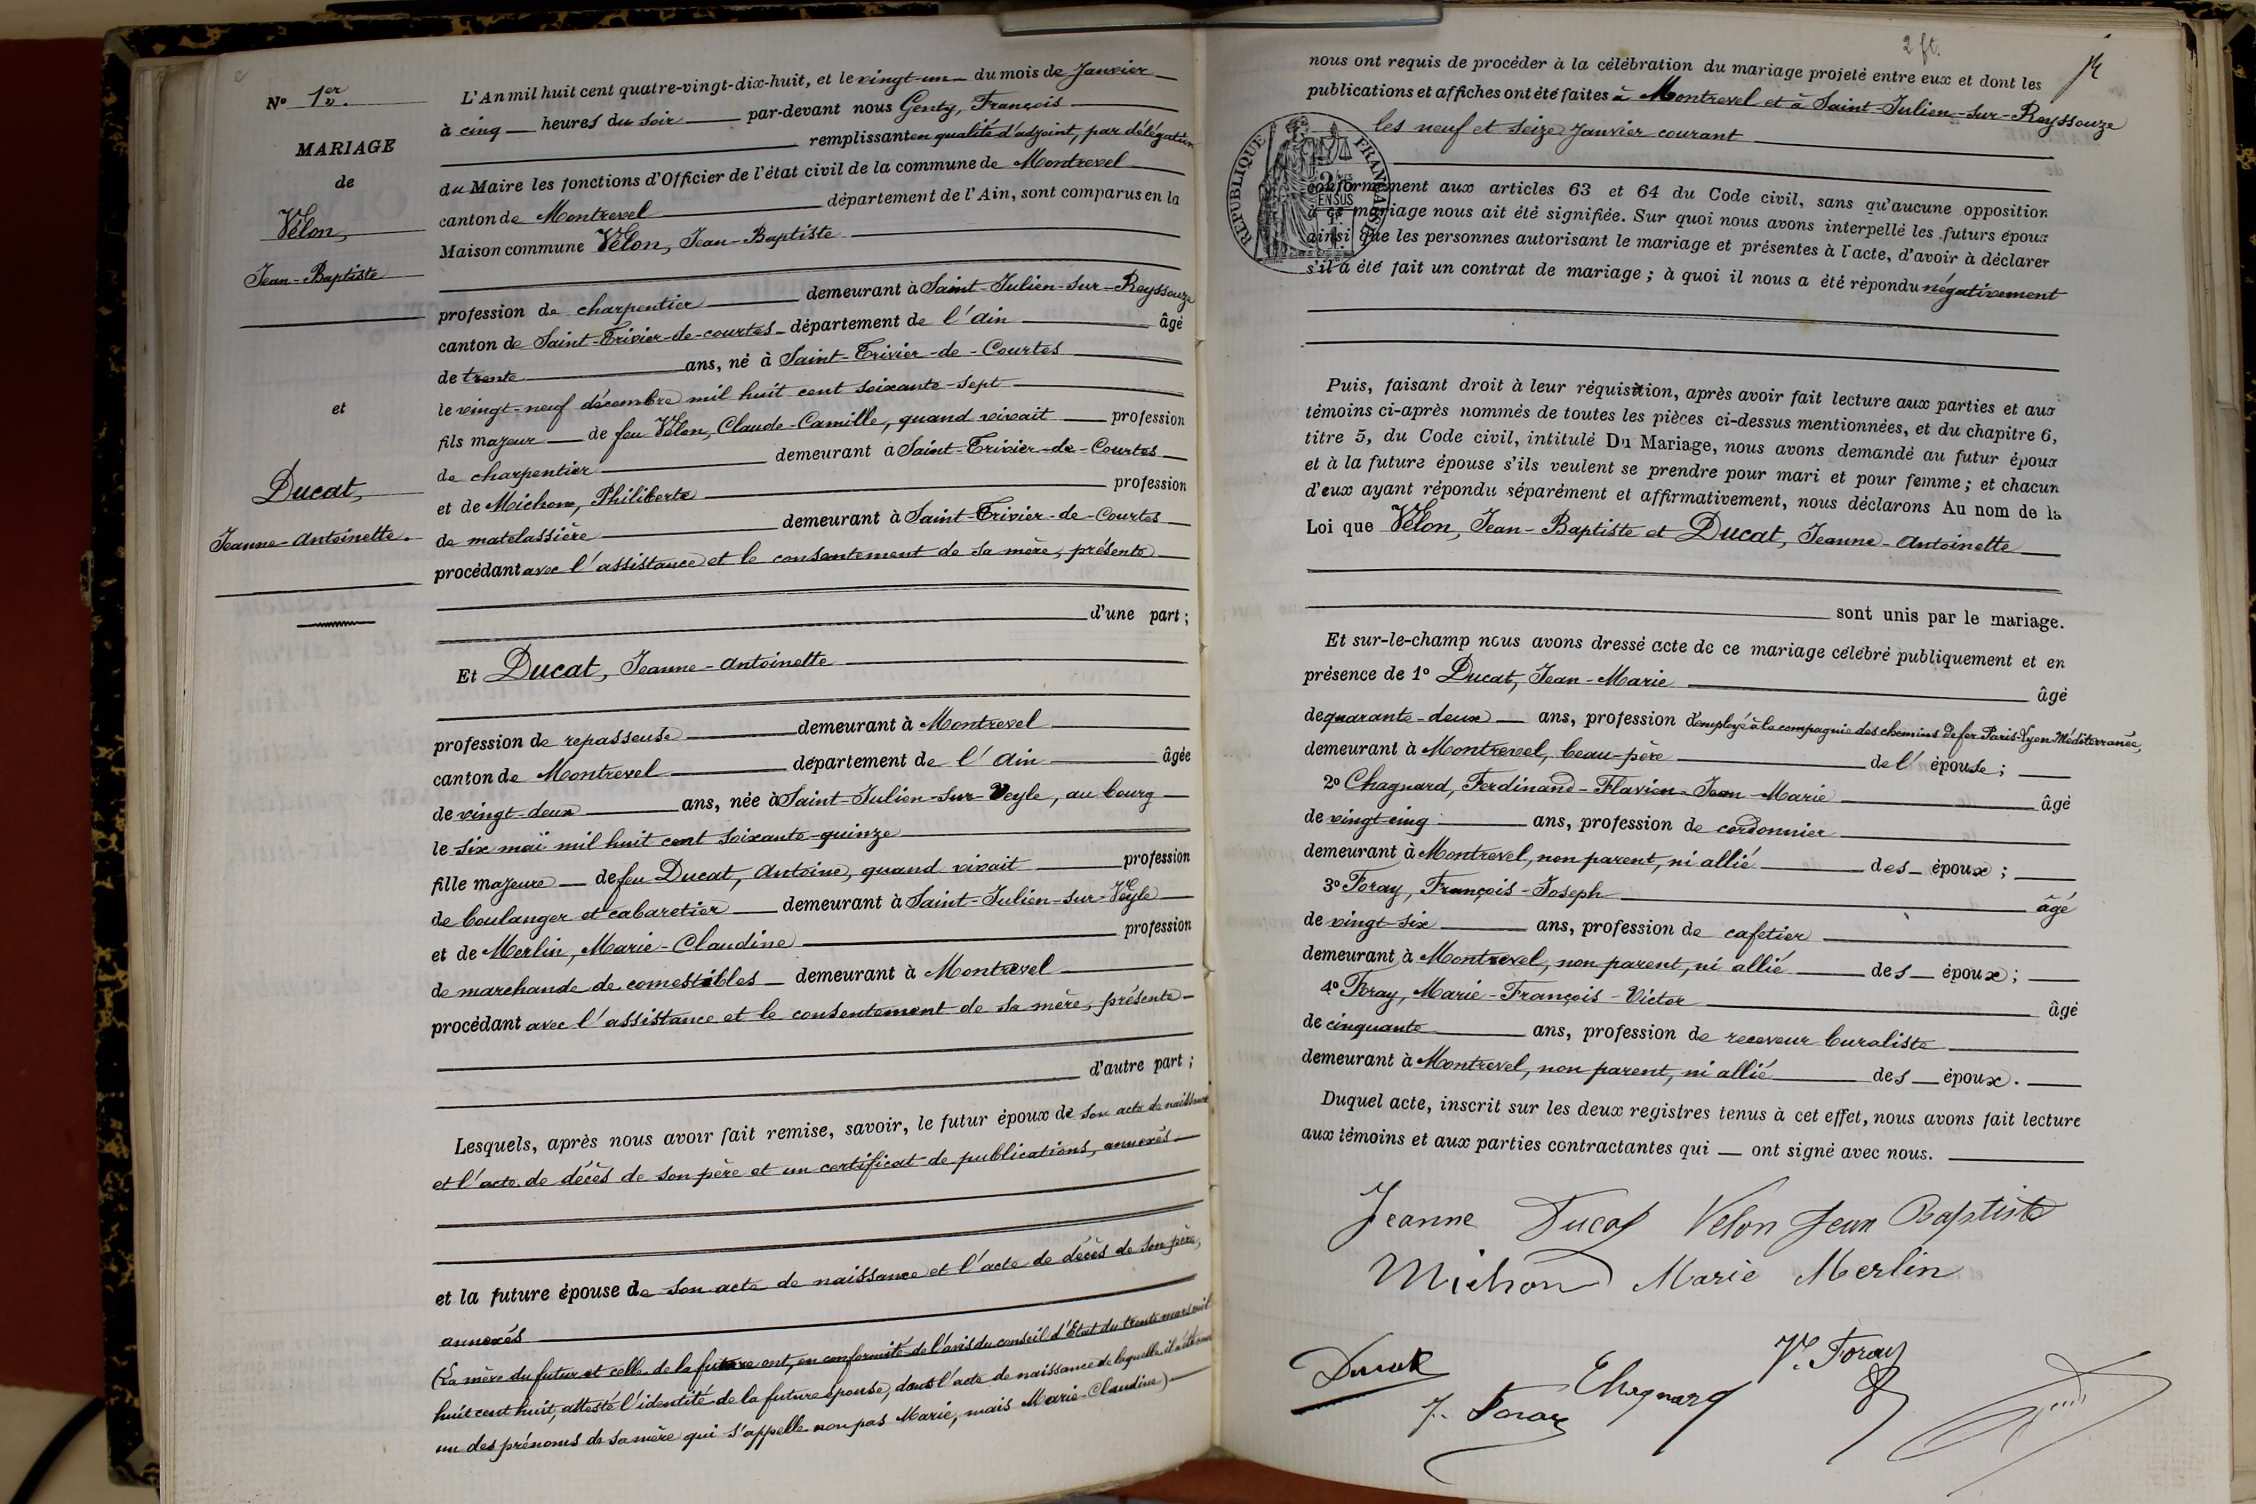 N° 1er.
MARIAGE
de
Vélon,
Jean-Baptiste
et
Ducat,
Jeanne-Antoinette.
L'An mil huit cent quatre-vingt-dix-huit, et le vingt-un du mois de Janvier
à cinq heures du soir par-devant nous Genty, François
remplissant en qualité d'adjoint, par délégation
du Maire les fonctions d'Officier de l'état civil de la commune de Montrevel
canton de Montrevel département de l'Ain, sont comparus en la
Maison commune Vélon, Jean-Baptiste
profession de charpentier demeurant à Saint-Julien-sur-Reyssouze
canton de Saint-Trivier-de-courtes département de l'Ain âgé
de trente ans, né à Saint-Trivier-de-Courtes
le vingt-neuf décembre mil huit cent soixante-sept
fils majeur de feu Vélon, Claude-Camille, quand vivait profession
de charpentier demeurant à Saint-Trivier-de-Courtes
et de Michon, Philiberte profession
de matelassière demeurant à Saint-Trivier-de-Courtes
procédant avec l'assistance et le consentement de sa mère, présente
d'une part ;
Et Ducat, Jeanne-Antoinette
profession de repasseuse demeurant à Montrevel
canton de Montrevel département de l'Ain âgée
de vingt-deux ans, née à Saint-Julien-sur-Veyle, au bourg
le six mai mil huit cent soixante-quinze
fille majeure de feu Ducat, Antoine, quand vivait profession
de boulanger et cabaretier demeurant à Saint-Julien-sur-Veyle
et de Merlin, Marie-Claudine profession
de marchande de comestibles demeurant à Montrevel
procédant avec l'assistance et le consentement de sa mère, présente
d'autre part ;
Lesquels, après nous avoir fait remise, savoir, le futur époux de son acte de naissance
et l'acte de décès de son père et un certificat de publications, annexés
et la future épouse de son acte de naissance et l'acte de décès de son père,
annexés
(La mère du futur et celle de la future ont, en conformité de l'avis du conseil d'Etat du trente mars mil
huit cent huit, attesté l'identité de la future épouse, dans l'acte de naissance de laquelle il a été omis
un des prénoms de sa mère qui s'appelle non pas Marie, mais Marie-Claudine)
2 ft.
nous ont requis de procéder à la célébration du mariage projeté entre eux et dont les
publications et affiches ont été faites à Montrevel et à Saint-Julien-sur-Reyssouze
les neuf et seize Janvier courant
RÉPUBLIQUE FRANÇAISE
conformément aux articles 63 et 64 du Code civil, sans qu'aucune opposition
à ce mariage nous ait été signifiée. Sur quoi nous avons interpellé les futurs époux
ainsi que les personnes autorisant le mariage et présentes à l'acte, d'avoir à déclarer
s'il a été fait un contrat de mariage ; à quoi il nous a été répondu négativement
Puis, faisant droit à leur réquisition, après avoir fait lecture aux parties et aux
témoins ci-après nommés de toutes les pièces ci-dessus mentionnées, et du chapitre 6,
titre 5, du Code civil, intitulé Du Mariage, nous avons demandé au futur époux
et à la future épouse s'ils veulent se prendre pour mari et pour femme ; et chacun
d'eux ayant répondu séparément et affirmativement, nous déclarons Au nom de la
Loi que Vélon, Jean-Baptiste et Ducat, Jeanne-Antoinette
sont unis par le mariage.
Et sur-le-champ nous avons dressé acte de ce mariage célébré publiquement et en
présence de 1° Ducat, Jean-Marie âgé
de quarante-deux ans, profession d'employé à la compagnie des chemins de fer Paris-Lyon-Méditerranée,
demeurant à Montrevel, beau-père de l'épouse ;
2° Chagnard, Ferdinand-Flavien-Jean-Marie âgé
de vingt-cinq ans, profession de cordonnier
demeurant à Montrevel, non parent, ni allié des époux ;
3° Foray, François-Joseph âgé
de vingt-six ans, profession de cafetier
demeurant à Montrevel, non parent, ni allié des époux ;
4° Foray, Marie-François-Victor âgé
de cinquante ans, profession de receveur buraliste
demeurant à Montrevel, non parent, ni allié des époux.
Duquel acte, inscrit sur les deux registres tenus à cet effet, nous avons fait lecture
aux témoins et aux parties contractantes qui ont signé avec nous.
Jeanne Ducat Velon Jean Baptiste
Michon Marie Merlin
Ducat Chagnard V. Foray
J. Foray